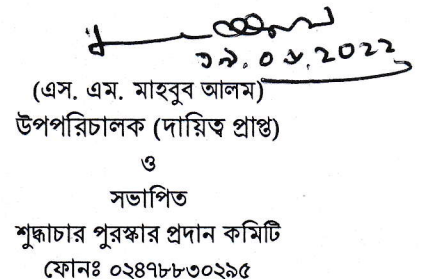 (এস. এম. মাহবুব আলম)
উপপরিচালক (দায়িত্ব প্রাপ্ত)
ও
সভাপিত
শুদ্ধাচার পুরস্কার প্রদান কমিটি
ফোনঃ ০২৪৭৮৮৩০২৯৫